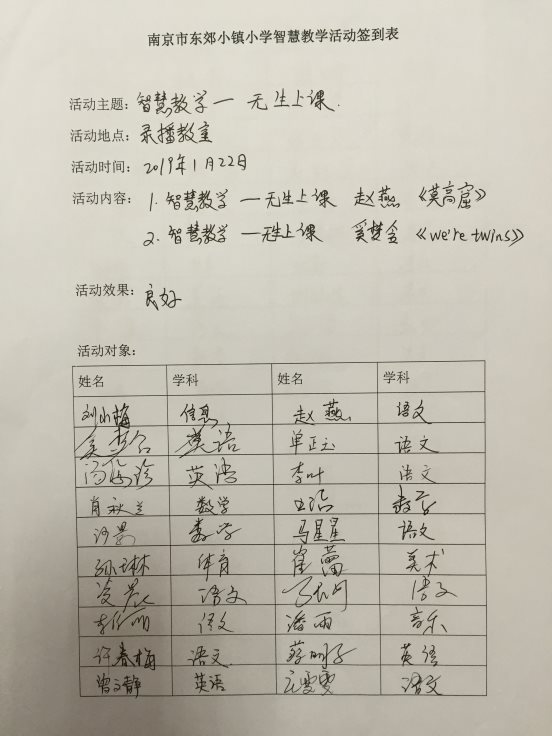 南京市东郊小镇小学智慧教学活动签到表
活动主题：智慧教学一 无生上课.
活动地点：录播教室
活动时间：2019年1月22日
活动内容：1. 智慧教学 一无生上课 赵燕 《莫高窟》
2. 智慧教学 一无生上课 奚梦含 《we're twins》
活动效果：良好
活动对象：
姓名 学科 姓名 学科
刘小梅 信息 赵燕 语文
英语 单正玉 语文
英语 李叶 语文
肖秋兰 数学 数学
数学 马星星 语文
孙琳 体育 崔蕾 美术
凌晨 语文 语文
语文 潘雨 音乐
许春梅 语文 英语
曾文静 英语 雯雯 语文